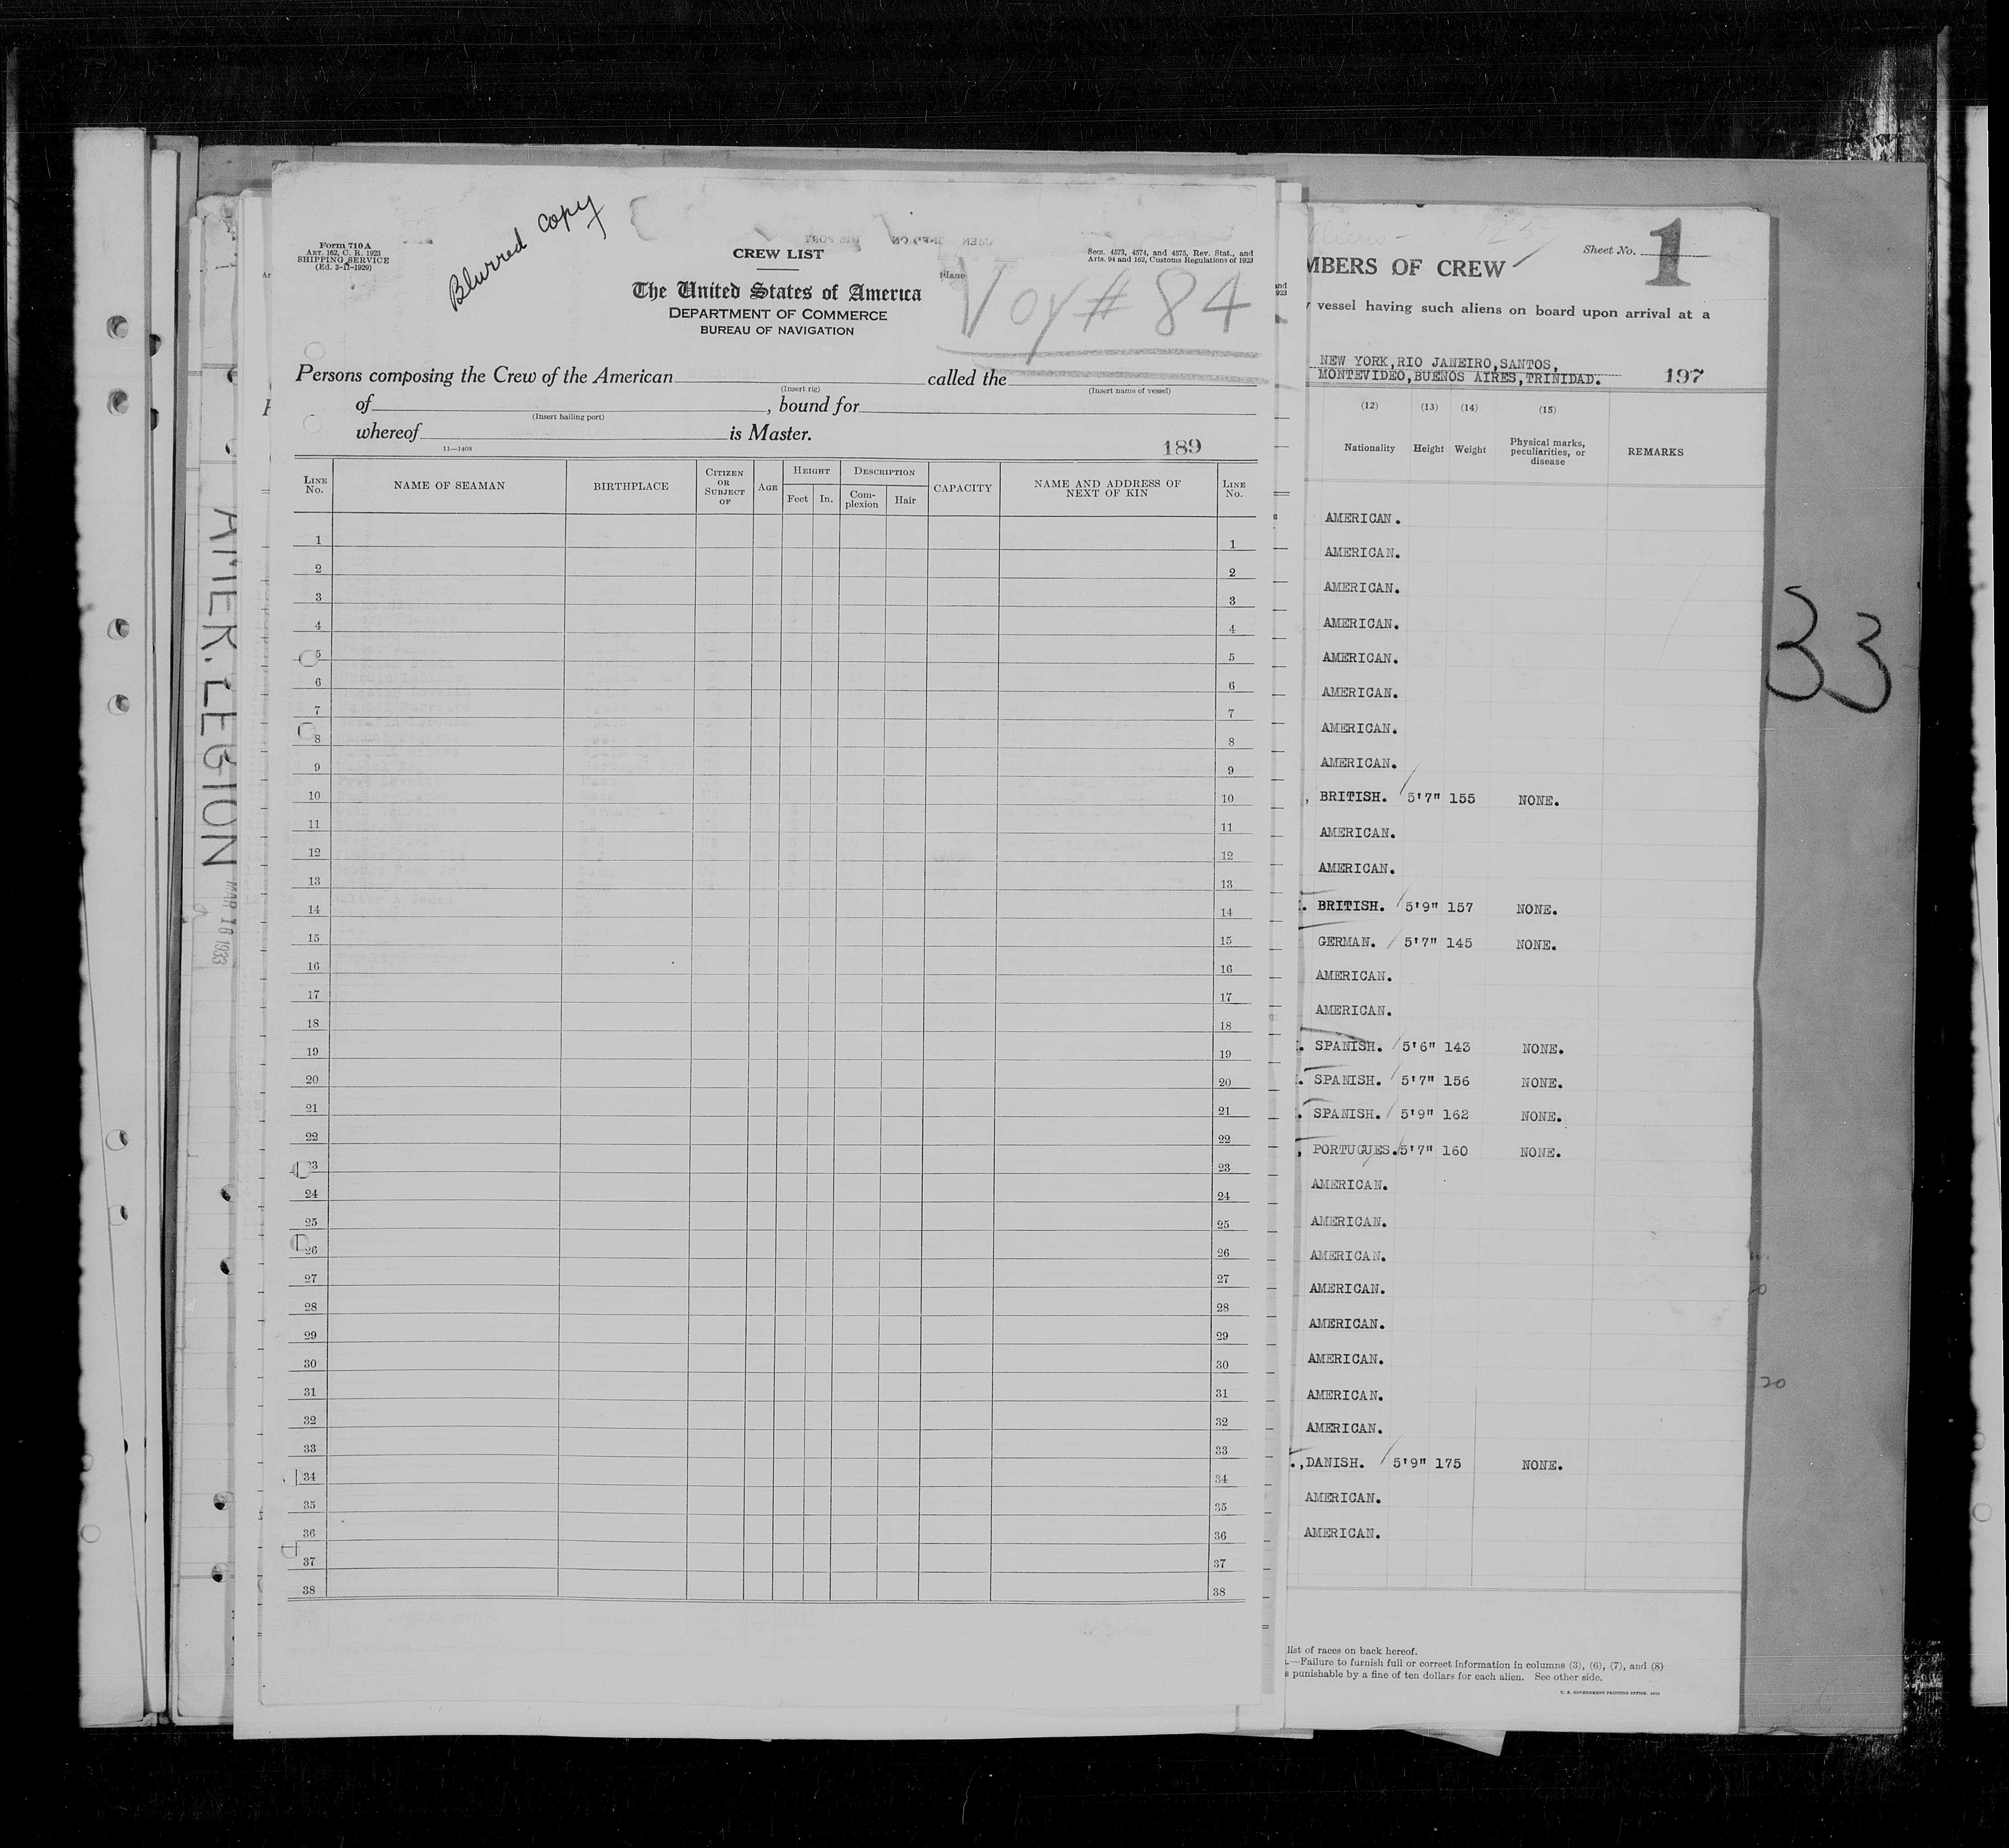 Blurred copy
Form 710 A
ART. 162, C. R. 1923
SHIPPING SERVICE
(Ed. 3-11-1929)
CREW LIST
The United States of America
DEPARTMENT OF COMMERCE
BUREAU OF NAVIGATION
Secs. 4573, 4574, and 4575, Rev. Stat., and
Arts. 94 and 162, Customs Regulations of 1923
Voy # 84
Persons composing the Crew of the American called the
(Insert rig) (Insert name of vessel)
of , bound for
(Insert hailing port)
whereof is Master.
11—1408
189
LINE No. NAME OF SEAMAN BIRTHPLACE CITIZEN OR SUBJECT OF AGE HEIGHT Feet In. DESCRIPTION Complexion Hair CAPACITY NAME AND ADDRESS OF NEXT OF KIN LINE No.
1 1
2 2
3 3
4 4
5 5
6 6
7 7
8 8
9 9
10 10
11 11
12 12
13 13
14 14
15 15
16 16
17 17
18 18
19 19
20 20
21 21
22 22
23 23
24 24
25 25
26 26
27 27
28 28
29 29
30 30
31 31
32 32
33 33
34 34
35 35
36 36
37 37
38 38
AMER. LEGION
MAR 16 1933
Sheet No. 1
MBERS OF CREW
vessel having such aliens on board upon arrival at a
NEW YORK,RIO JANEIRO,SANTOS,
MONTEVIDEO,BUENOS AIRES,TRINIDAD.
197
(12) (13) (14) (15)
Nationality Height Weight Physical marks, peculiarities, or disease REMARKS
AMERICAN.
AMERICAN.
AMERICAN.
AMERICAN.
AMERICAN.
AMERICAN.
AMERICAN.
AMERICAN.
BRITISH. 5'7" 155 NONE.
AMERICAN.
AMERICAN.
BRITISH. 5'9" 157 NONE.
GERMAN. 5'7" 145 NONE.
AMERICAN.
AMERICAN.
SPANISH. 5'6" 143 NONE.
SPANISH. 5'7" 156 NONE.
SPANISH. 5'9" 162 NONE.
PORTUGUES. 5'7" 160 NONE.
AMERICAN.
AMERICAN.
AMERICAN.
AMERICAN.
AMERICAN.
AMERICAN.
AMERICAN.
AMERICAN.
DANISH. 5'9" 175 NONE.
AMERICAN.
AMERICAN.
list of races on back hereof.
.—Failure to furnish full or correct information in columns (3), (6), (7), and (8)
s punishable by a fine of ten dollars for each alien. See other side.
U. S. GOVERNMENT PRINTING OFFICE
33
20